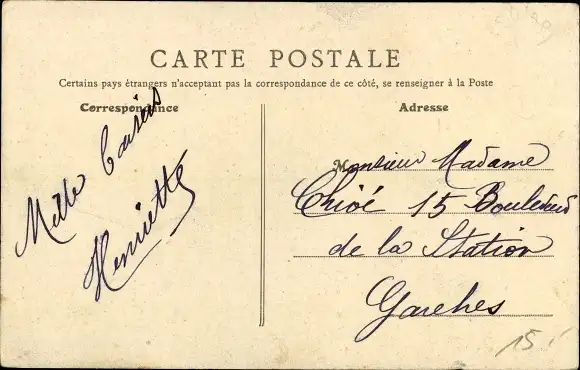 CARTE POSTALE
Certains pays étrangers n'acceptant pas la correspondance de ce côté, se renseigner à la Poste
Correspondance
Adresse
Mille baisers
Henriette
Monsieur Madame
Chioé 15 Boulevard
de la Station
Garches
15